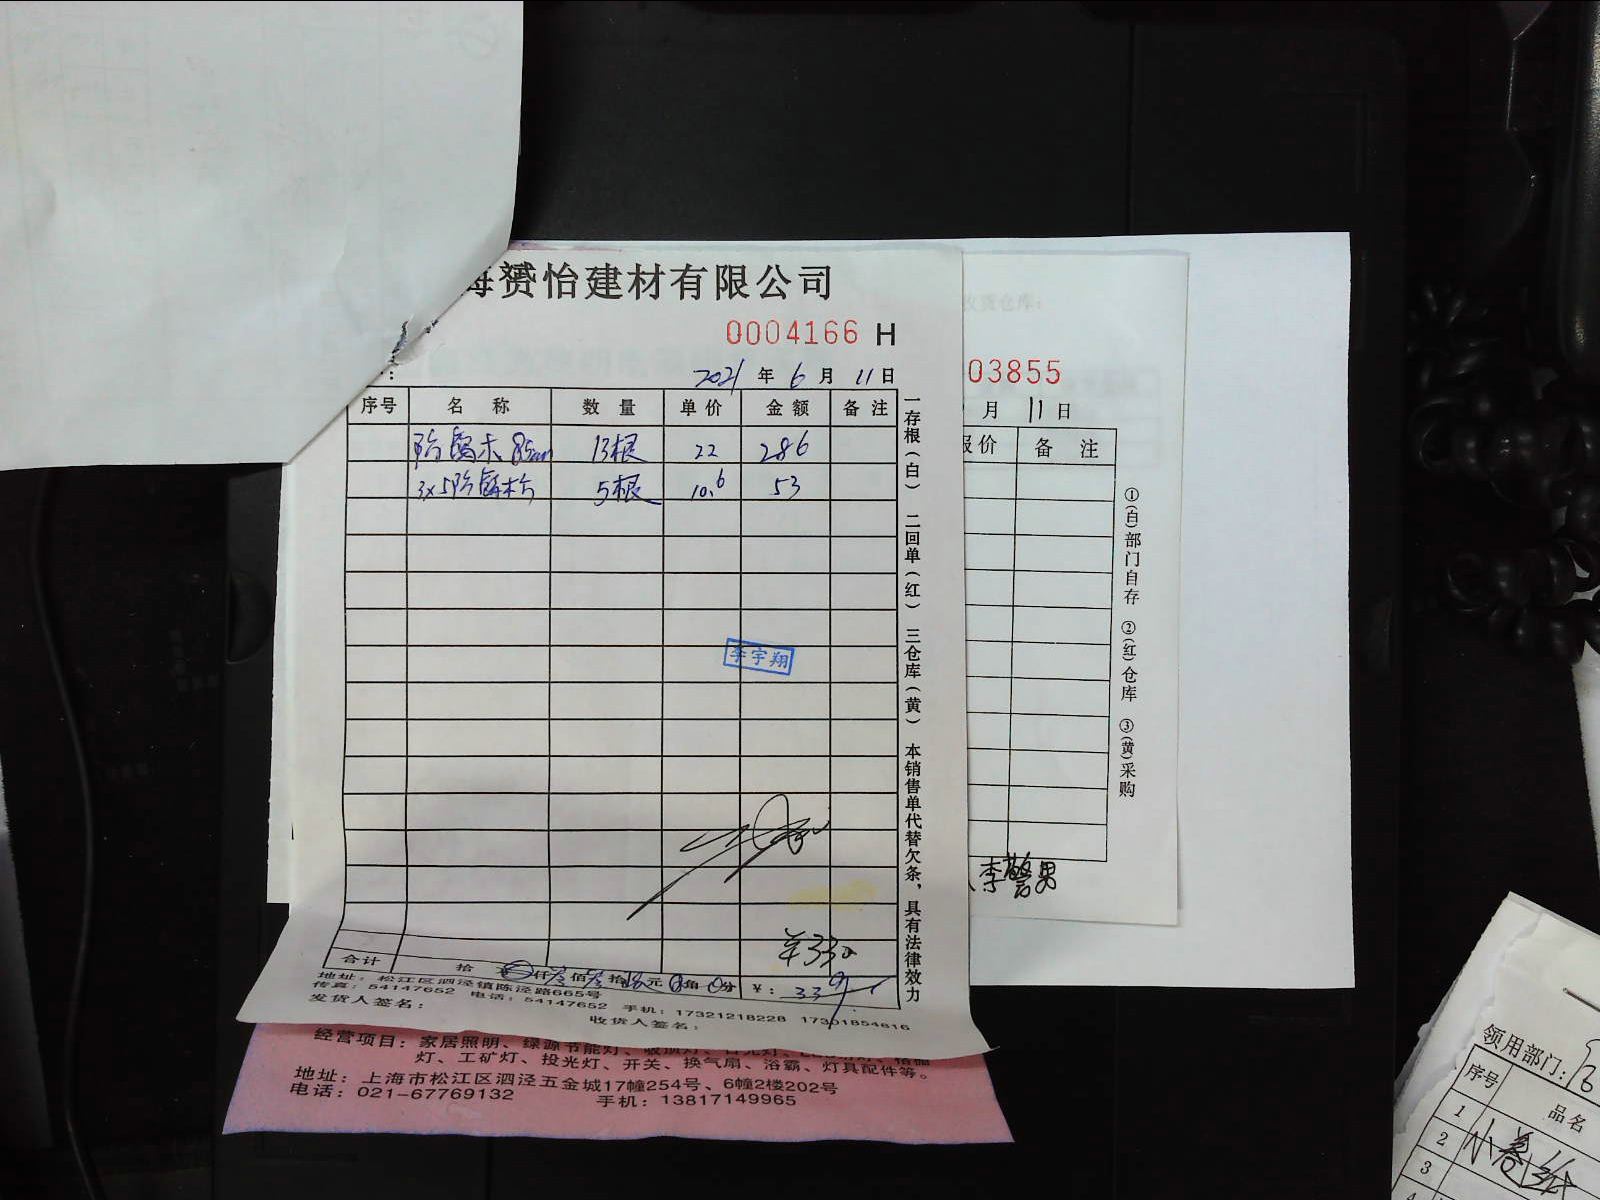 海赟怡建材有限公司
0004166 H
2021 年 6 月 11 日
序号 名 称 数 量 单 价 金 额 备 注
防腐木 85cm 13根 22 286
3x5防腐木方 5根 10.6 53
李宇翔
合计 拾 仟 佰 拾 元 角 分 ¥: 339
地址: 松江区泗泾镇陈泾路665号
传真: 54147652 电话: 54147652 手机: 17321218228 17301854616
发货人签名: 收货人签名:
一存根(白) 二回单(红) 三仓库(黄) 本销售单代替欠条,具有法律效力
03855
月 11 日
报价 备 注
①(白)部门自存 ②(红)仓库 ③(黄)采购
李警男
经营项目: 家居照明、绿源节能灯、
灯、工矿灯、投光灯、开关、换气扇、浴霸、灯具配件等。
地址: 上海市松江区泗泾五金城17幢254号、6幢2楼202号
电话: 021-67769132 手机: 13817149965
领用部门:
序号 品名
1
2 小卷纸
3